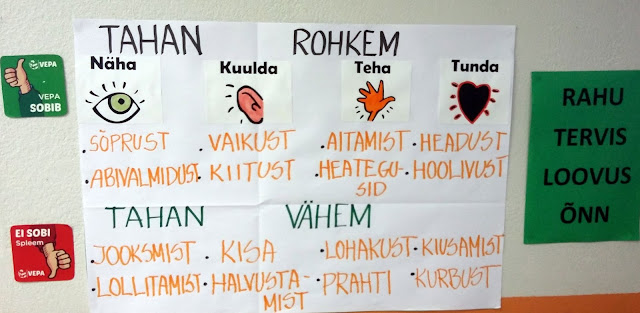 TAHAN ROHKEM
Näha Kuulda Teha Tunda
•SÕPRUST •VAIKUST •AITAMIST •HEADUST
•ABIVALMIDUST •KIITUST •HEATEGU- •HOOLIVUST
SID
TAHAN VÄHEM
•JOOKSMIST •KISA •LOHAKUST •KIUSAMIST
•LOLLITAMIST •HALVUSTA- •PRAHTI •KURBUST
MIST
VEPA
VEPA
SOBIB
EI SOBI
Spleem
VEPA
RAHU
TERVIS
LOOVUS
ÕNN